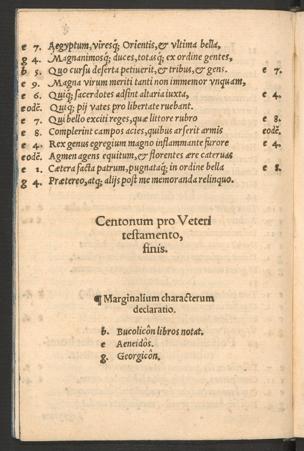 e 7. Aegyptum, viresq; Orientis, & vltima bella,
g 4. Magnanimosq; duces, totasq; ex ordine gentes,
b 5. Quo cursu deserta petiuerit, & tribus, & gens. e 7.
e 9. Magna virum meriti tanti non immemor vnquam,
e 6. Quiq; sacerdotes adsint altaria iuxta, e 4.
eodē. Quiq; pij vates pro libertate ruebant.
e 7. Qui bello exciti reges, quæ littore rubro e 8.
e 8. Complerint campos acies, quibus arserit armis eodē.
e 4. Rex genus egregium magno inflammante furore e 4.
eodē. Agmen agens equitum, & florentes ære cateruas
e 1. Cætera facta patrum, pugnataq; in ordine bella e 8.
g 4. Prætereo, atq; alijs post me memoranda relinquo.
Centonum pro Veteri
testamento,
finis.
¶ Marginalium characterum
declaratio.
b. Bucolicôn libros notat.
e Aeneidos.
g. Georgicôn.